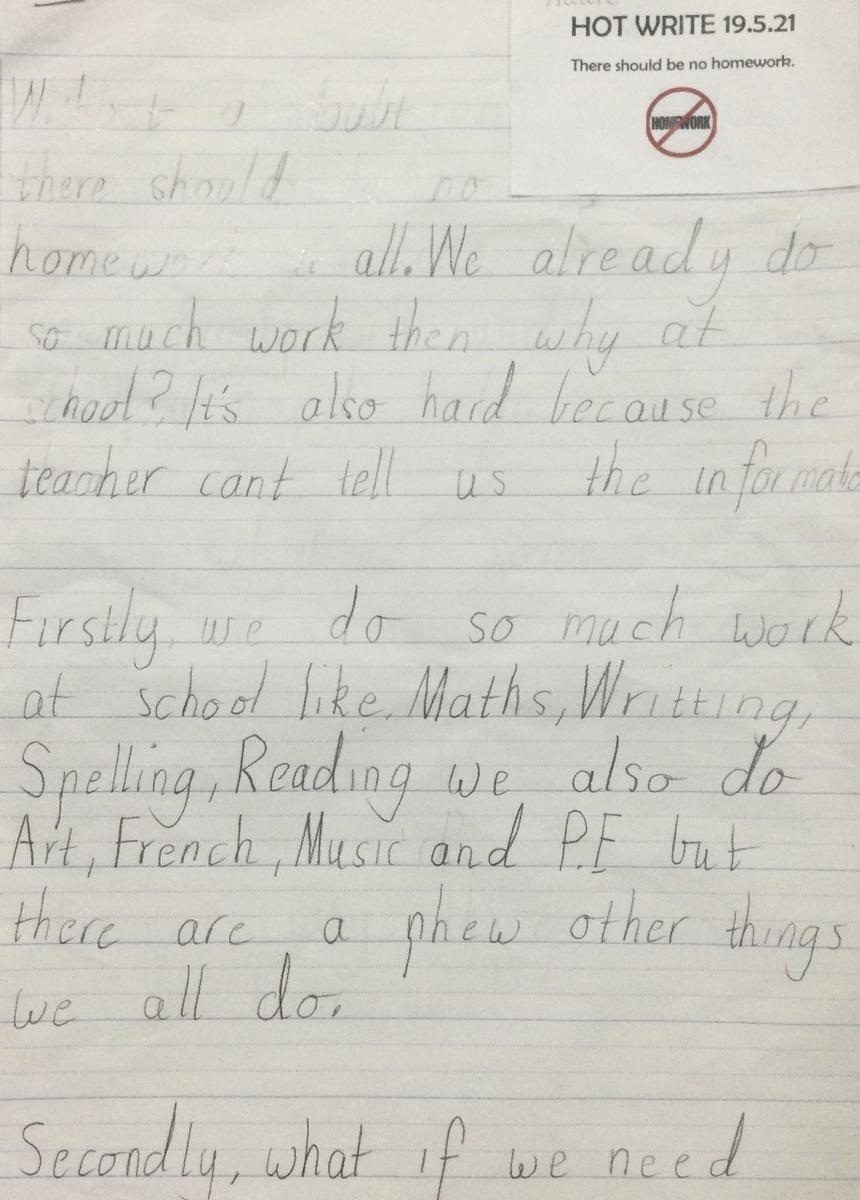 HOT WRITE 19.5.21
There should be no homework.
HOMEWORK
Without a doubt
there should no
homework all. We already do
so much work then why at
school? It's also hard because the
teacher cant tell us the informatio
Firstly, we do so much work
at school like, Maths, Writting,
Spelling, Reading we also do
Art, French, Music and P.E but
there are a phew other things
we all do.
Secondly, what if we need